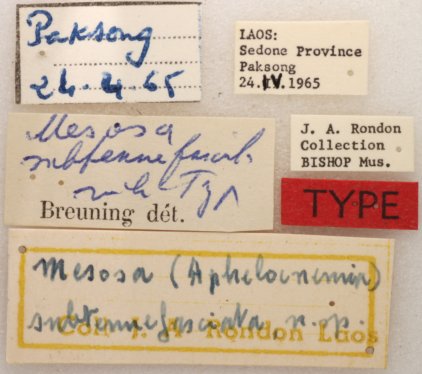 Paksong
24.4.65
LAOS:
Sedone Province
Paksong
24.IV.1965
Mesosa
subtenuefasci
Typ
Breuning dét.
J. A. Rondon
Collection
BISHOP Mus.
TYPE
Mesosa (Aphelocnemia)
subtenuefasciata, n. sp.
Coll. J. A. Rondon Laos